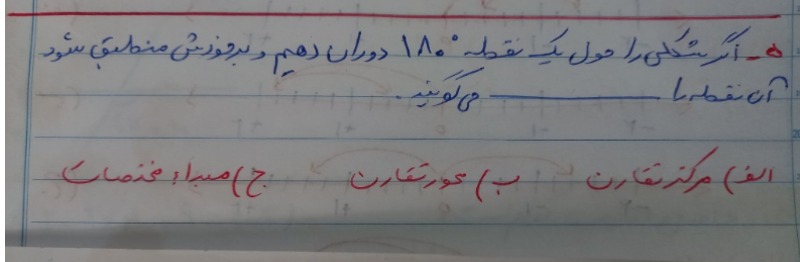 ۵- اگر شکلی را حول یک نقطه ۱۸۰° دوران دهیم و برخودش منطبق شود
آن نقطه را ــــــــــــ می گویند.
الف) مرکز تقارن ب) محور تقارن ج) مبداء مختصات